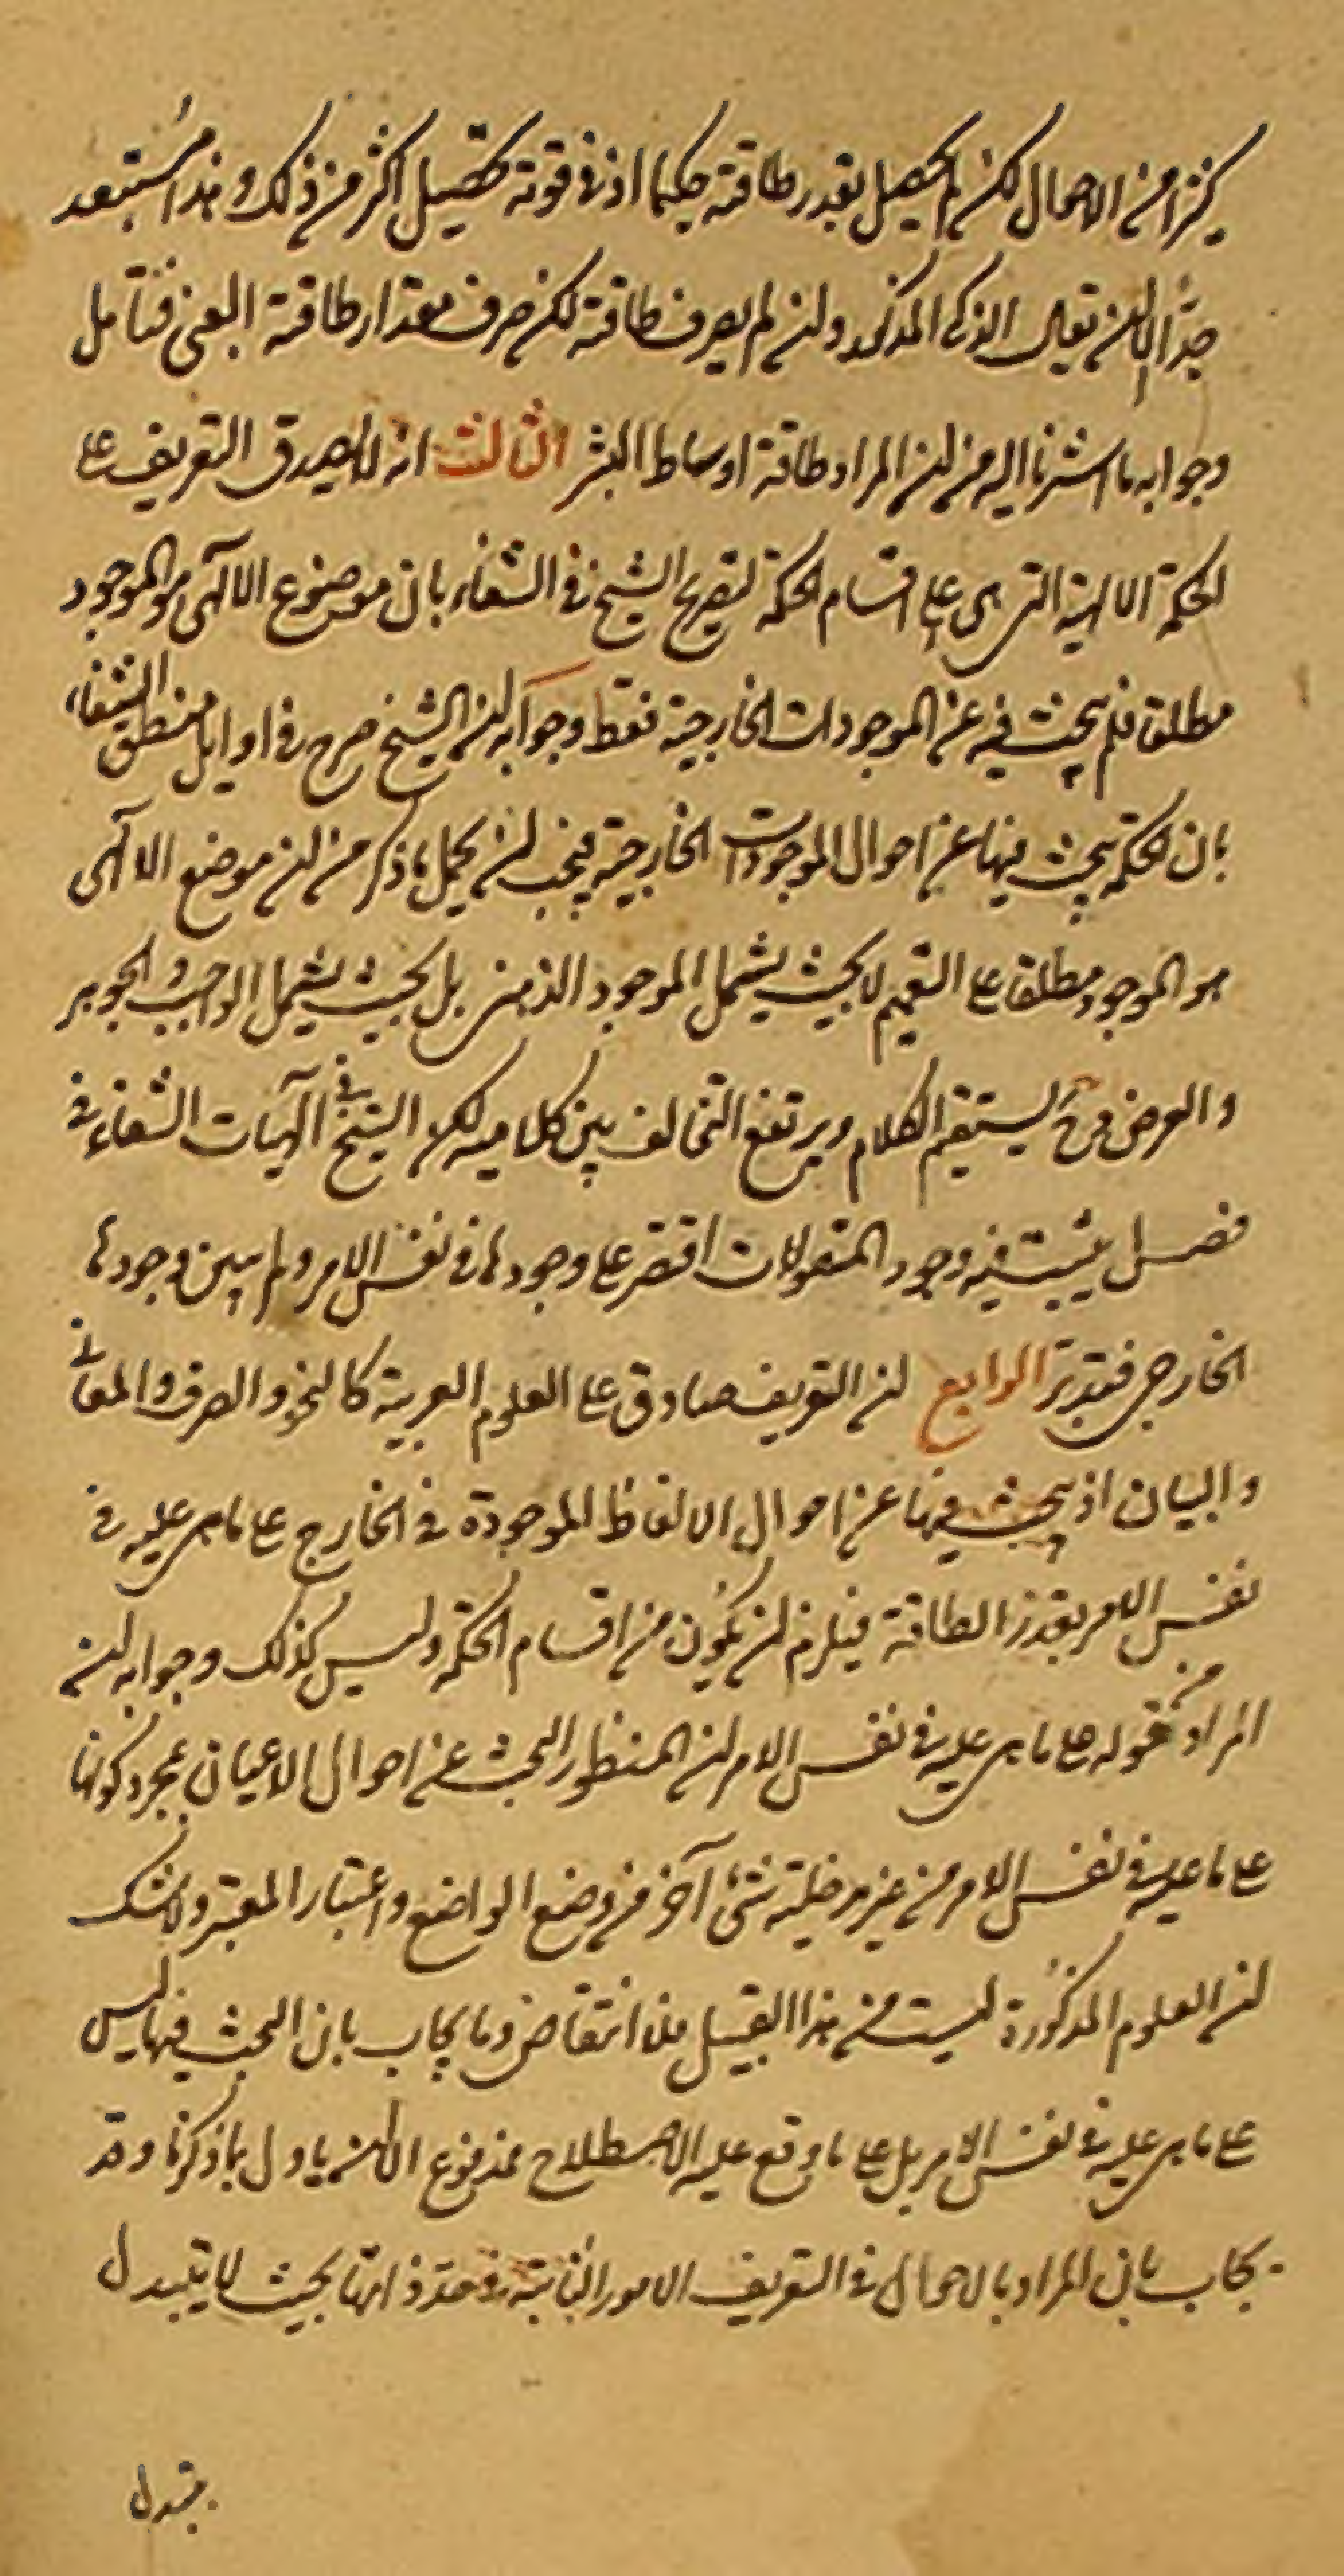 كثيرا من الاحوال لكن لم يحصل بقدر طاقته حكيما اذ في قوته تحصيل اكثر من ذلك وهذا مستبعد
جدا الا ان يقال الذكي المذكور وان لم يصرف طاقته لكن صرف مقدار طاقة الغبي فتأمل
وجوابه ما اشرنا اليه من ان المراد طاقة اوساط البشر الثالث انه لا يصدق التعريف على
الحكمة الالهية التي هي اعلى اقسام الحكمة لتصريح الشيخ في الشفاء بان موضوع الالهى هو الموجود
مطلقا فلم يبحث فيه عن الموجودات الخارجية فقط وجوابه ان الشيخ صرح في اوايل منطق الشفاء
بان الحكمة يبحث فيها عن احوال الموجودات الخارجية فيجب ان يحمل ما ذكر من ان موضع الالهى
هو الموجود مطلقا على التعميم لا بحيث يشمل الموجود الذهني بل بحيث يشمل الواجب والجوهر
والعرض وح يستقيم الكلام ويرتفع التخالف بين كلاميه لكن الشيخ في الهيات الشفاء في
فصل يثبت فيه وجود المقولات اقتصر على وجودها في نفس الامر ولم يبين وجودها
الخارجي فتدبر الرابع ان التعريف صادق على العلوم العربية كالنحو والصرف والمعاني
والبيان اذ يبحث فيها عن احوال الالفاظ الموجودة في الخارج على ما هي عليه في
نفس الامر بقدر الطاقة فيلزم ان يكون من اقسام الحكمة وليس كذلك وجوابه ان
المراد من قوله على ما هي عليه في نفس الامر ان المنظور البحث عن احوال الاعيان بمجرد كونها
على ما عليه في نفس الامر من غير مدخلية شئ آخر من وضع الواضع واعتبار المعتبر ولا شك
ان العلوم المذكورة ليست من هذا القبيل فلا انتقاض وما يجاب بان البحث فيها ليس
على ما هي عليه في نفس الامر بل على ما وقع عليه الاصطلاح فمدفوع الا ان ياول بما ذكرنا وقد
يجاب بان المراد بالاحوال في التعريف الامور الثابتة في حد ذاتها بحيث لا يتبدل
بتبدل